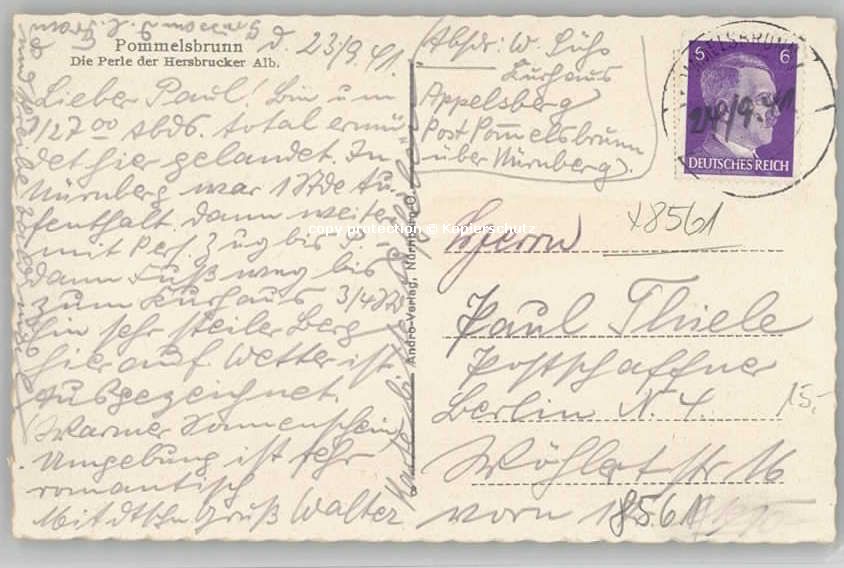 Pommelsbrunn
Die Perle der Hersbrucker Alb.
d. 23/9. 41.
Lieber Paul! Bin um
1/2 7 00 Abds. total ermü
det hier gelandet. In
Nürnberg war 1 Stde Au-
fenthalt. dann weiter
mit Pers. Zug bis P-
dann Fußweg bis
zum Kurhaus 3/4 Std
Ein sehr steiler Berg
hierauf. Wetter ist
Ausgezeichnet.
(Warmer Sonnenschein
Umgebung ist sehr
romantisch
Mit dtschn Gruß Walter
Andro-Verlag, Nürnberg-O.
(Absdr: W. Lühs
Kurhaus
Appelsberg
Post Pommelsbrunn
über Nürnberg).
6 6
24/9.41
DEUTSCHES REICH
copy protection © Kapierschutz
+8561
Herrn
Paul Thiele
Postschaffner
Berlin N. 4.
15,-
Wöhlertstr 16
vorn
8561